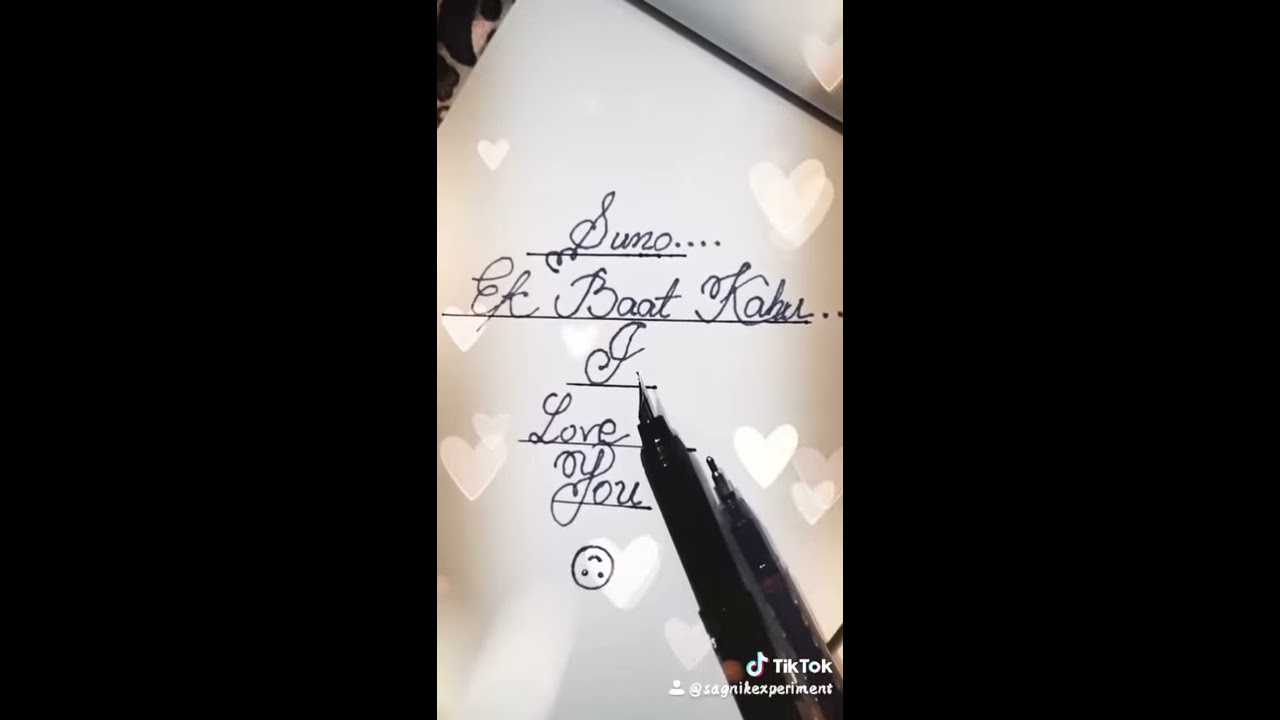 Suno....
Ek Baat Kahu...
I
Love
You
TikTok
@sagnikexperiment